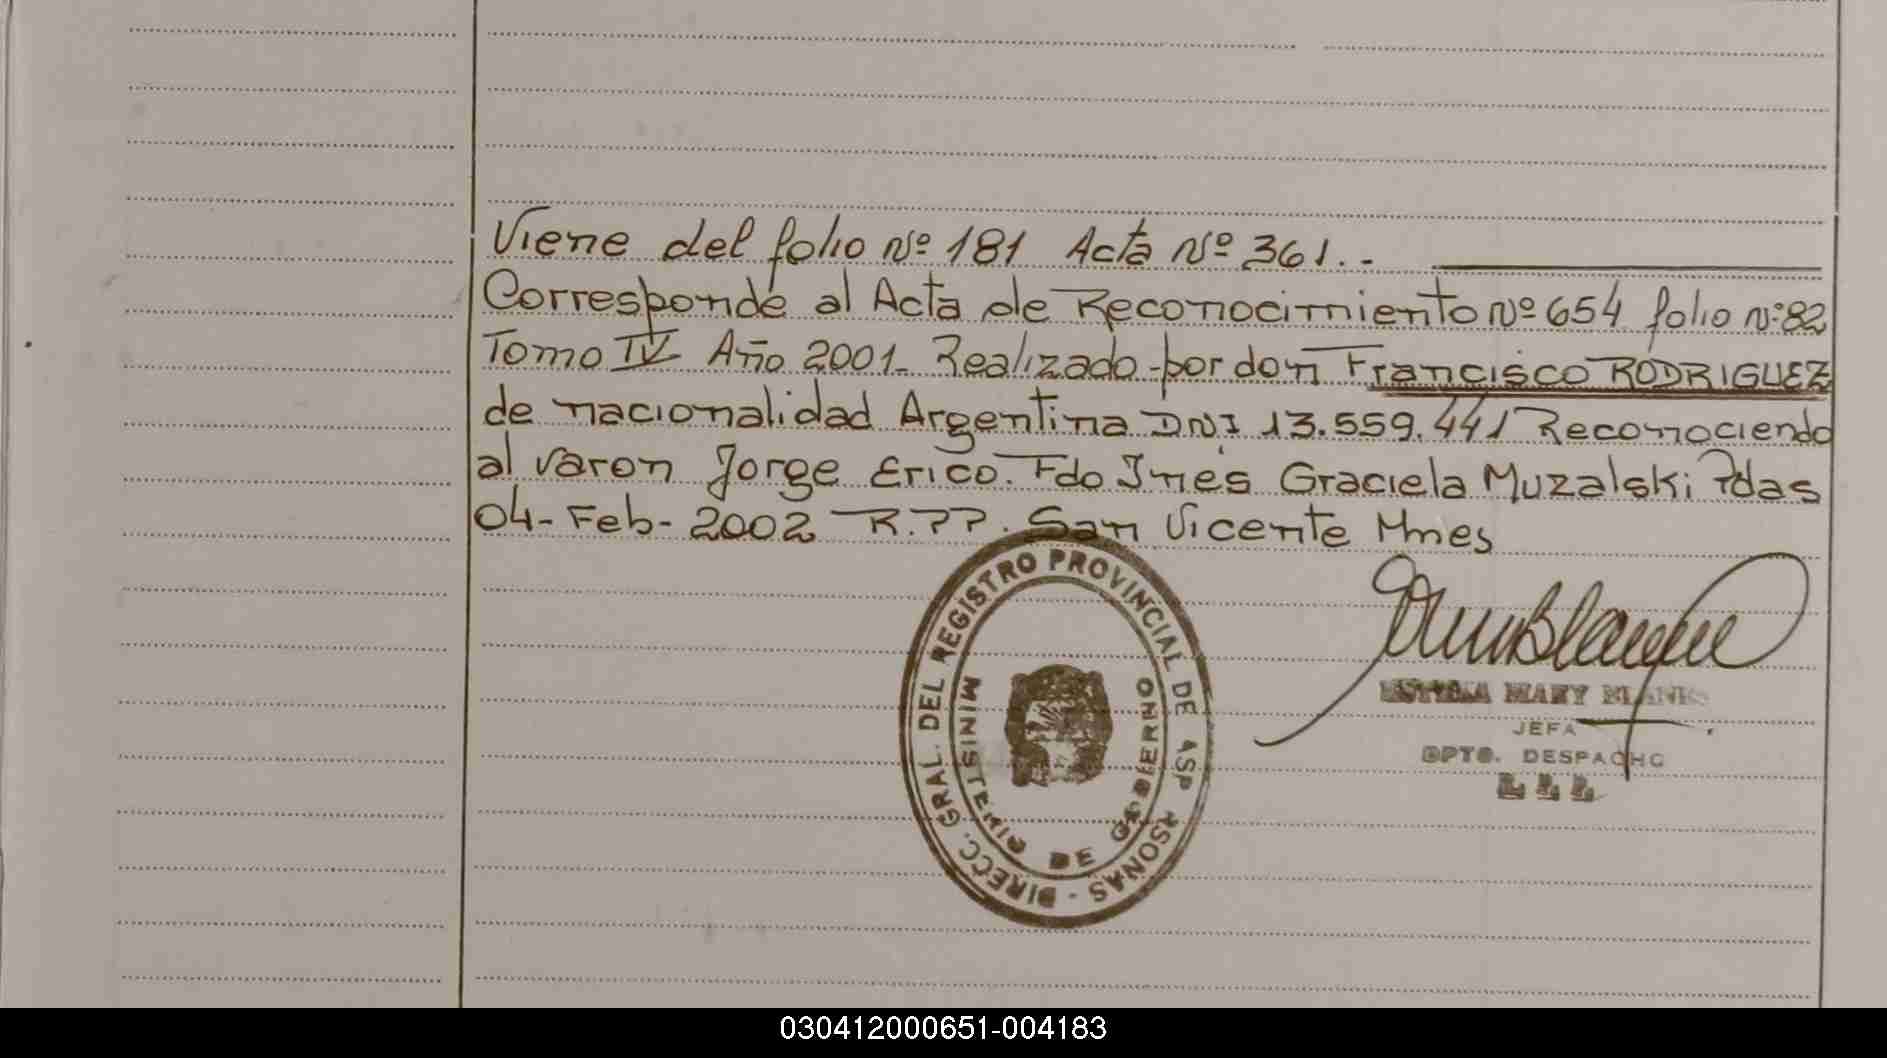 Viene del folio Nº 181 Acta Nº 361.-
Corresponde al Acta de Reconocimiento Nº 654 folio Nº 82
Tomo IV Año 2001- Realizado por don Francisco RODRIGUEZ
de nacionalidad Argentina DNI 13.559.441 Reconociendo
al varon Jorge Erico. Fdo Inés Graciela Muzalski Pdas
04-Feb-2002 R.PP. San Vicente Mnes
DIRECC. GRAL. DEL REGISTRO PROVINCIAL DE
MINISTERIO DE GOBIERNO
MARY
JEFA
DPTO. DESPACHO
030412000651-004183